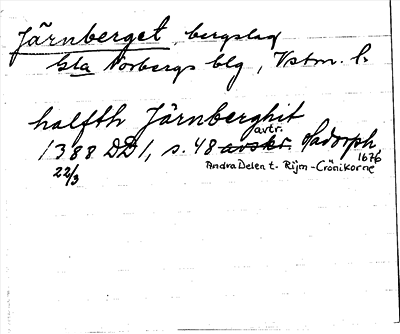 Järnberget, bergslag
Gla Norbergs blg, Vstm. l.
halfth Järnberghit
avtr.
1388 DD1, s. 48 avskr. Hadorph
22/3
1676
Andra Delen t. Rijm-Crönikorne